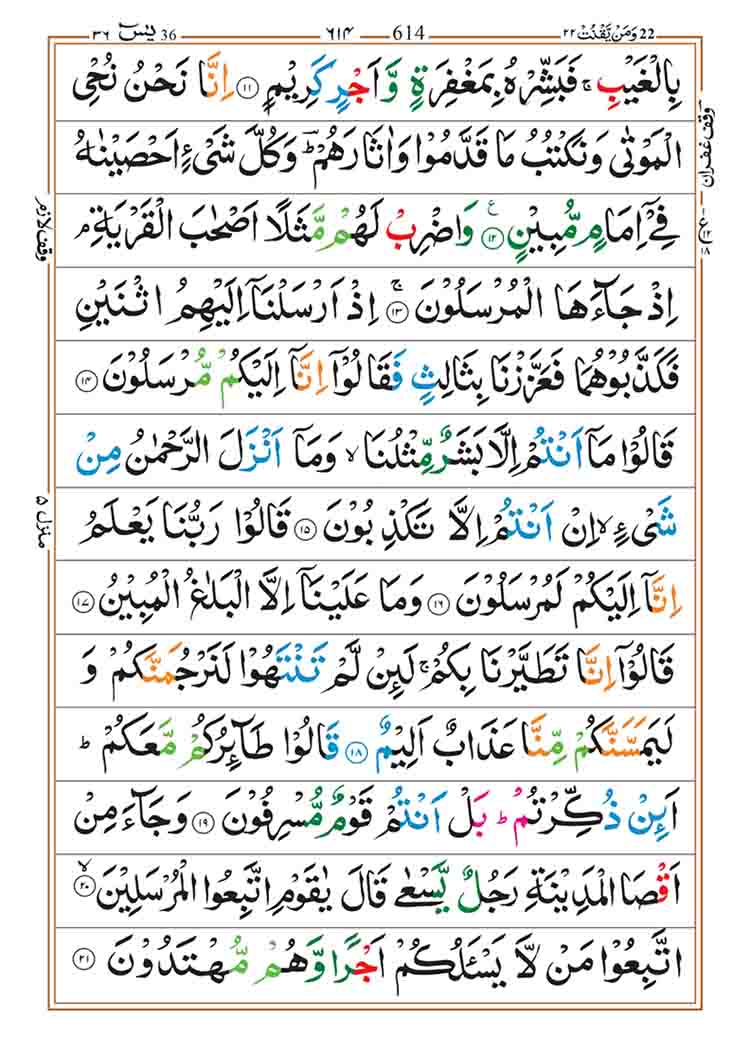 22 وَمَنْ يَّقْنُتْ ٢٢ 614 ٦١٤ 36 يٰسٓ ٣٦
بِالْغَيْبِ ۚ فَبَشِّرْهُ بِمَغْفِرَةٍ وَّاَجْرٍ كَرِيْمٍ ۝١١ اِنَّا نَحْنُ نُحْىِ
الْمَوْتٰى وَنَكْتُبُ مَا قَدَّمُوْا وَاٰثَارَهُمْ ؕ وَكُلَّ شَىْءٍ اَحْصَيْنٰهُ
وقف غفران
فِىْۤ اِمَامٍ مُّبِيْنٍ ۝١٢ ع وَاضْرِبْ لَهُمْ مَّثَلًا اَصْحٰبَ الْقَرْيَةِ ۘ
وقف لازم
اِذْ جَآءَهَا الْمُرْسَلُوْنَ ۚ ۝١٣ اِذْ اَرْسَلْنَاۤ اِلَيْهِمُ اثْنَيْنِ
فَكَذَّبُوْهُمَا فَعَزَّزْنَا بِثَالِثٍ فَقَالُوْۤا اِنَّاۤ اِلَيْكُمْ مُّرْسَلُوْنَ ۝١٤
قَالُوْا مَاۤ اَنْتُمْ اِلَّا بَشَرٌ مِّثْلُنَا ۙ وَمَاۤ اَنْزَلَ الرَّحْمٰنُ مِنْ
شَىْءٍ ۙ اِنْ اَنْتُمْ اِلَّا تَكْذِبُوْنَ ۝١٥ قَالُوْا رَبُّنَا يَعْلَمُ
منزل ٥
اِنَّاۤ اِلَيْكُمْ لَمُرْسَلُوْنَ ۝١٦ وَمَا عَلَيْنَاۤ اِلَّا الْبَلٰغُ الْمُبِيْنُ ۝١٧
قَالُوْۤا اِنَّا تَطَيَّرْنَا بِكُمْ ۚ لَئِنْ لَّمْ تَنْتَهُوْا لَنَرْجُمَنَّكُمْ وَ
لَيَمَسَّنَّكُمْ مِّنَّا عَذَابٌ اَلِيْمٌ ۝١٨ قَالُوْا طَآئِرُكُمْ مَّعَكُمْ ؕ
اَئِنْ ذُكِّرْتُمْ ؕ بَلْ اَنْتُمْ قَوْمٌ مُّسْرِفُوْنَ ۝١٩ وَجَآءَ مِنْ
اَقْصَا الْمَدِيْنَةِ رَجُلٌ يَّسْعٰى قَالَ يٰقَوْمِ اتَّبِعُوا الْمُرْسَلِيْنَ ۙ ۝٢٠
اتَّبِعُوْا مَنْ لَّا يَسْـَٔلُكُمْ اَجْرًا وَّهُمْ مُّهْتَدُوْنَ ۝٢١